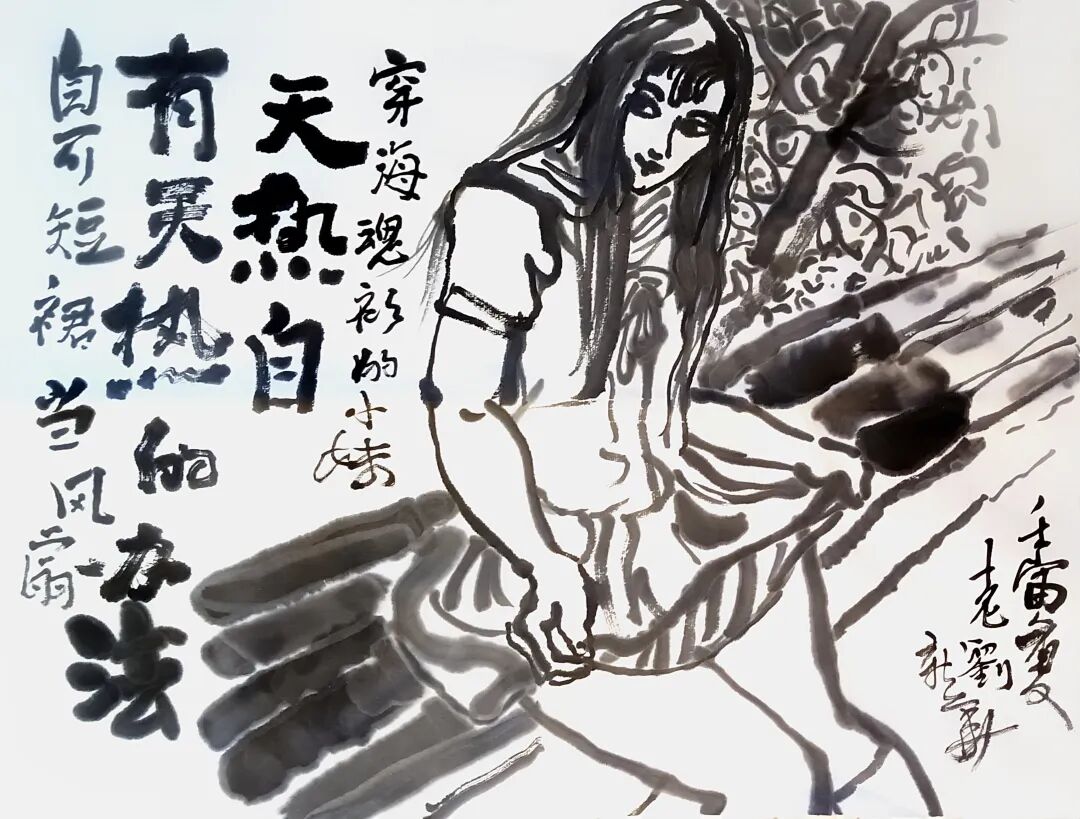 穿海魂衫的小妹
天热自
有热的办法
自可短裙当风扇
壬寅夏
老劉